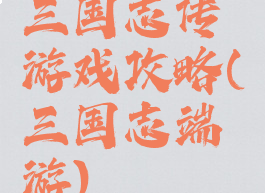 三国志传
游戏攻略(
三国志端
游)